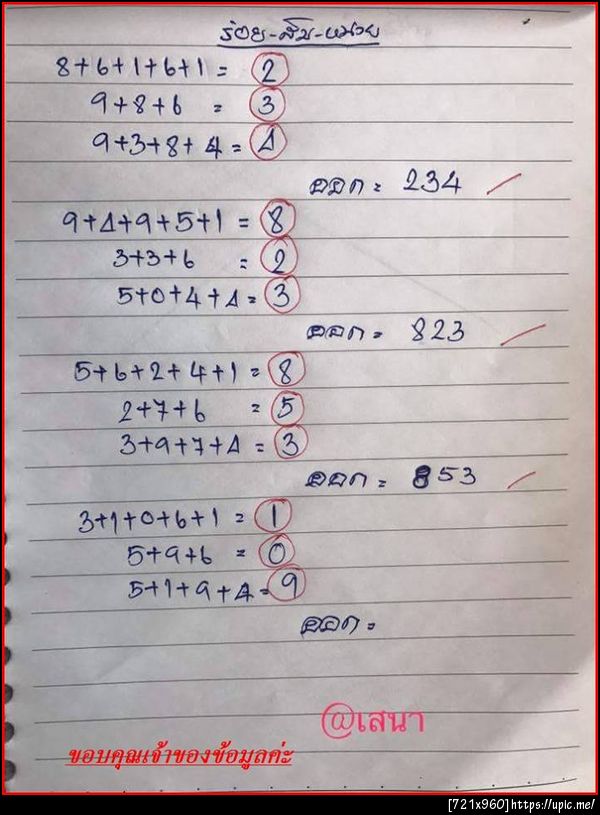 ร้อย-สิบ-หน่วย
8+6+1+6+1 = 2
9+8+6 = 3
9+3+8+4 = 4
ออก = 234
9+4+9+5+1 = 8
3+3+6 = 2
5+0+4+4 = 3
ออก = 823
5+6+2+4+1 = 8
2+7+6 = 5
3+9+7+4 = 3
ออก = 853
3+1+0+6+1 = 1
5+9+6 = 0
5+1+9+4 = 9
ออก =
@เสนา
ขอบคุณเจ้าของข้อมูลค่ะ
[721x960]https://upic.me/